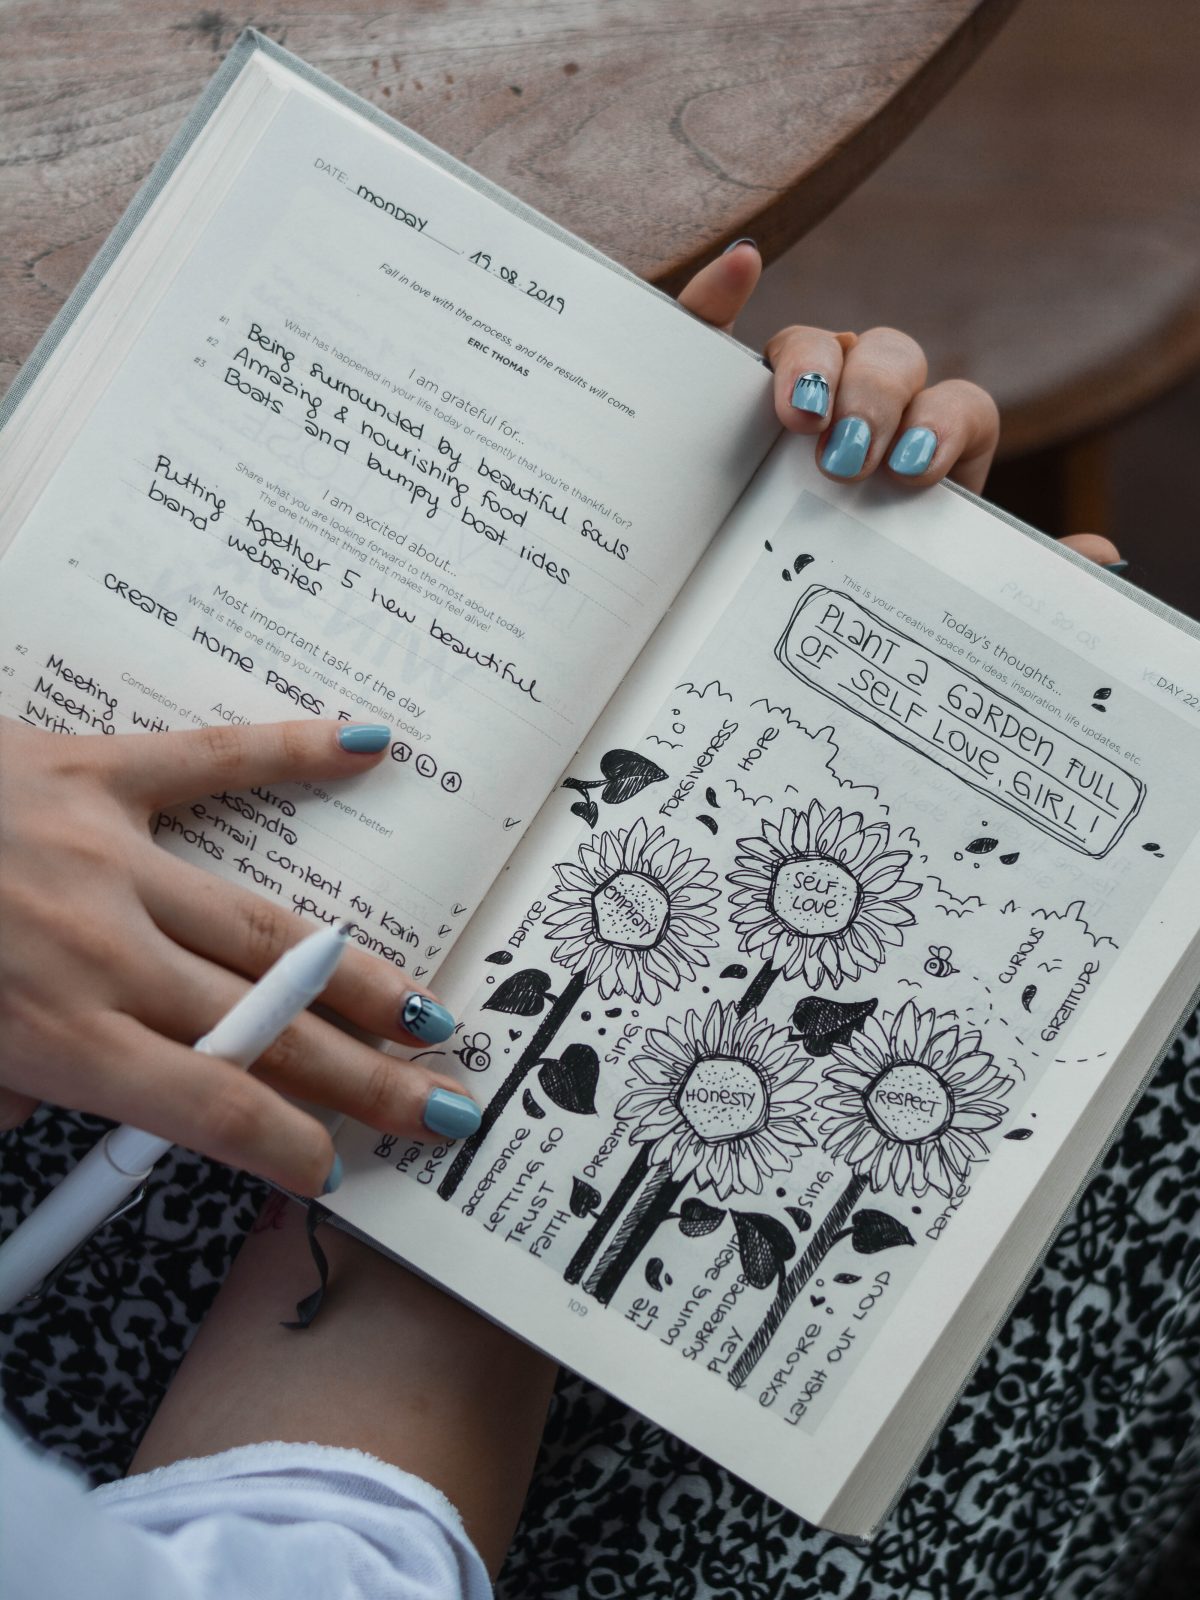 DATE: monday, 19.08.2019
Fall in love with the process, and the results will come.
ERIC THOMAS
I am grateful for...
What has happened in your life today or recently that you're thankful for?
#1 Being surrounded by beautiful souls
#2 Amazing & nourishing food
#3 Boats and bumpy boat rides
I am excited about...
Share what you are looking forward to the most about today.
The one thin that thing that makes you feel alive!
Putting together 5 new beautiful
brand websites
Most important task of the day
What is the one thing you must accomplish today?
#1 CREATE HOME PAGES F A L A
Addit
Completion of the the day even better!
#2 Meeting with
#3 Meeting
Writi e-mail content for Karin
photos from your camera
DAY 22
Today's thoughts...
This is your creative space for ideas, inspiration, life updates, etc.
PLANT a GARDEN FULL
OF SELF LOVE, GIRL!
FORGIVENESS
HOPE
SELF
LOVE
EMPHATY
Dance
CURIOUS
GRATITUDE
SING
HONESTY
RESPECT
acceptance
LETTING GO
TRUST
FAITH
DREAM
SING
Dance
HE
LP
LOVING again
SURRENDER
PLAY
EXPLORE
LAUGH OUT LOUD
109